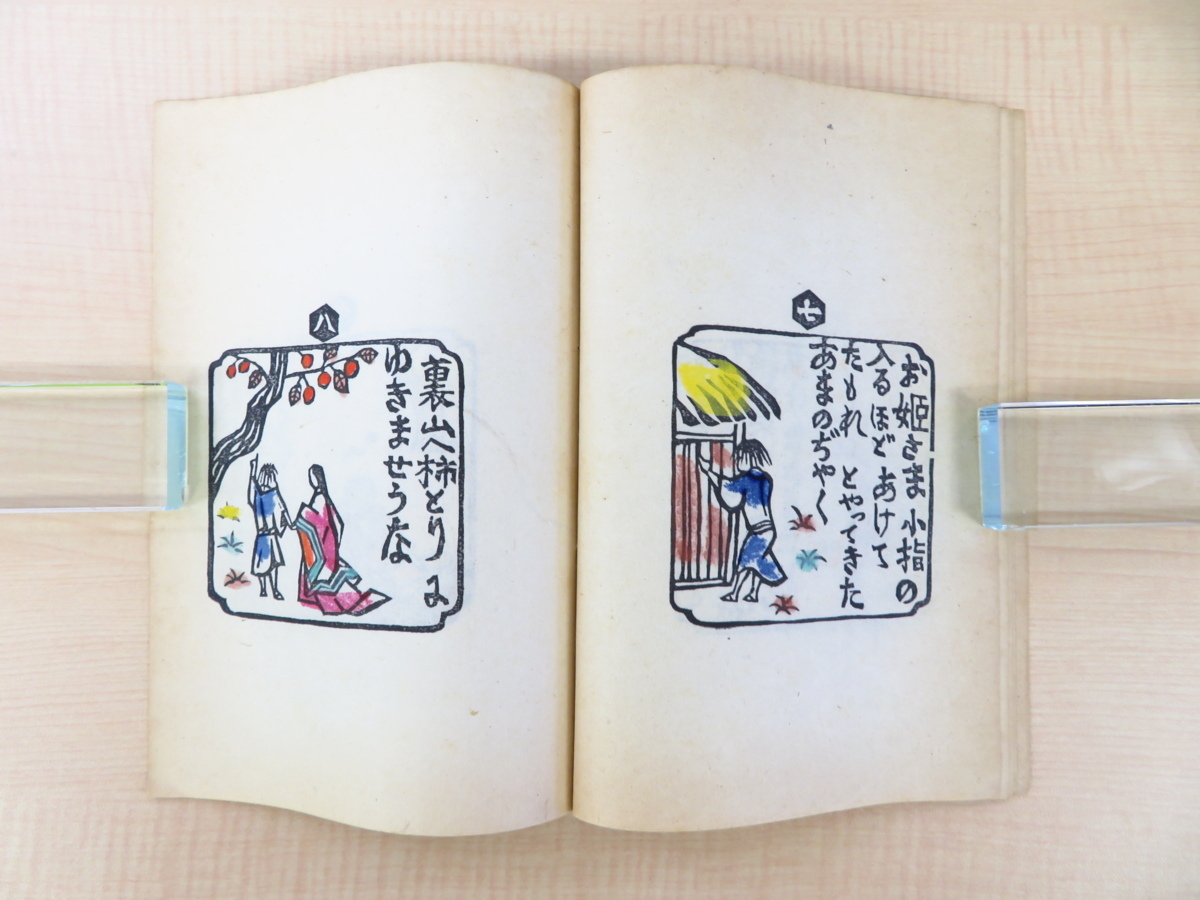 七
お姫さま 小指の
入るほど あけて
たもれ とやってきた
あまのぢゃく
八
裏山へ柿とりに
ゆきませうな